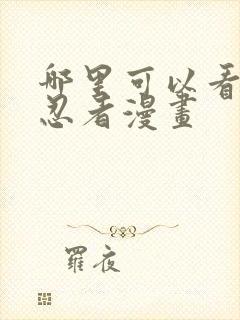 哪里可以看
忍者漫畫
羅夜